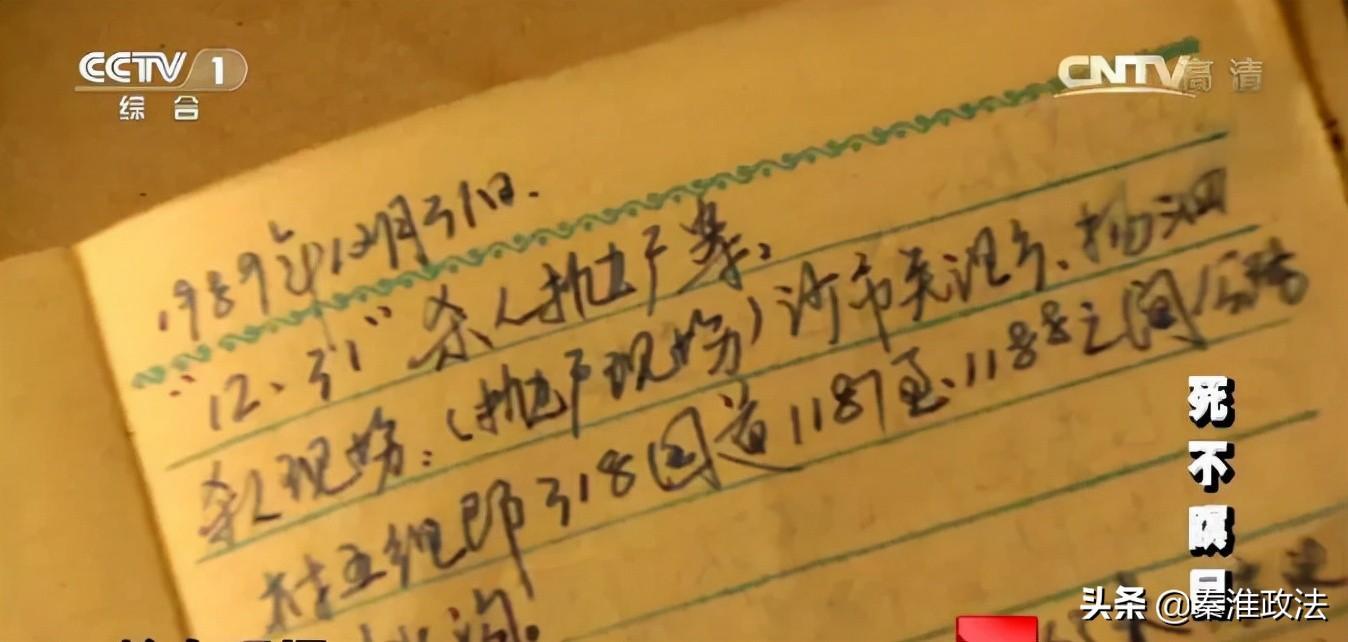 CCTV 1
综合
CNTV高清
1989年12月31日.
"12.31"杀人抛尸案:
杀人现场:(抛尸现场)沙市关沮乡、杨泗
村五组即318国道1187至1188之间公路
沟.
死不瞑目
头条 @秦淮政法